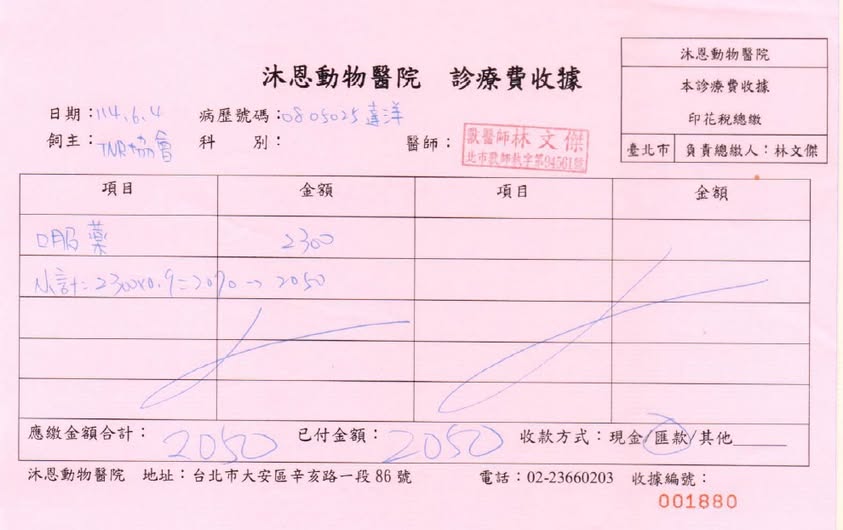 沐恩動物醫院 診療費收據
沐恩動物醫院
本診療費收據
印花稅總繳
臺北市 負責總繳人：林文傑
日期：114.6.4 病歷號碼：0805025 達洋
飼主：TNR協會 科 別： 醫師：
獸醫師林文傑
北市獸師執字第94561號
項目 金額 項目 金額
口服藥 2300
小計=2300x0.9=2070→2050
應繳金額合計：2050 已付金額：2050 收款方式：現金/匯款/其他______
沐恩動物醫院 地址：台北市大安區辛亥路一段86號 電話：02-23660203 收據編號：
001880